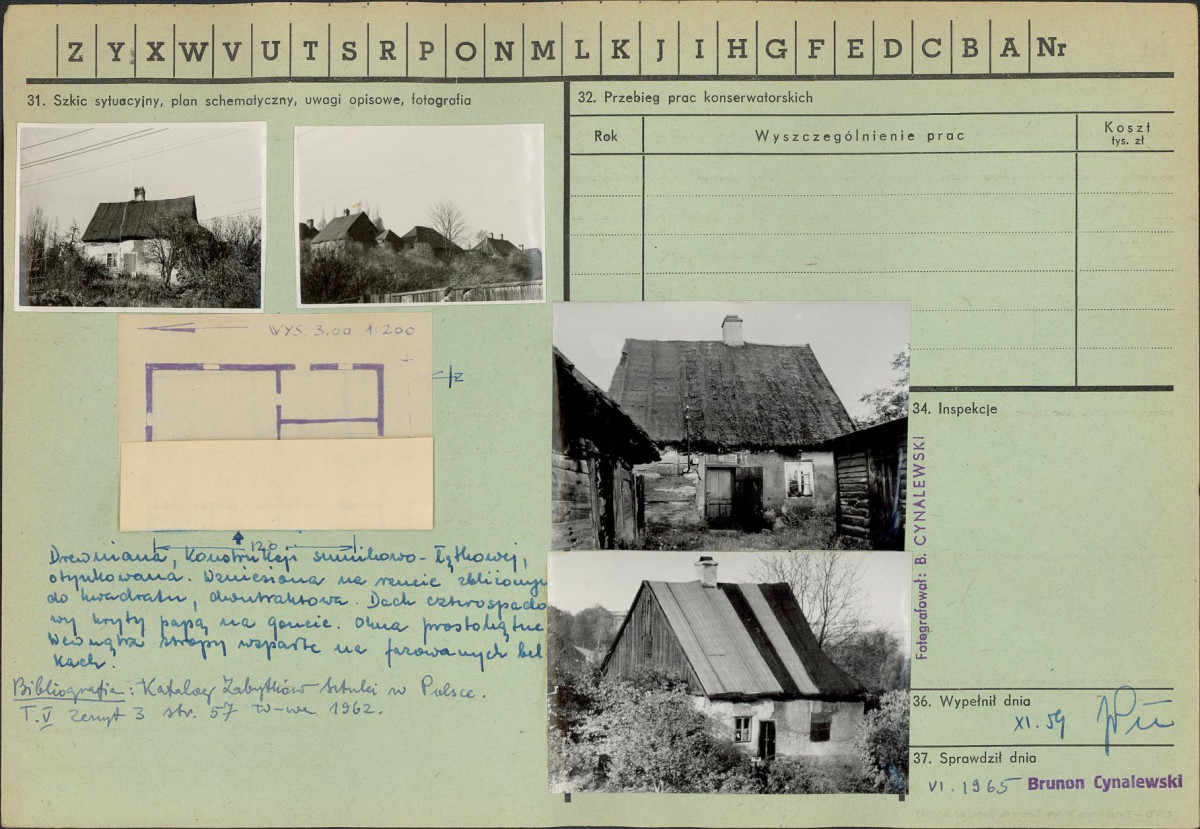 Z Y X W V U T S R P O N M L K J I H G F E D C B A Nr
31. Szkic sytuacyjny, plan schematyczny, uwagi opisowe, fotografia
WYS. 3.00 1:200
N
120
Drewniana, konstrukcji sumikowo-łątkowej,
otynkowana. Wzniesiona na rzucie zbliżonym
do kwadratu, dwutraktowa. Dach czterospado
wy kryty papą na goncie. Okna prostokątne
Wewnątrz stropy wsparte na fazowanych bel
kach.
Bibliografia: Katalog Zabytków Sztuki w Polsce.
T. V zeszyt 3 str. 57 W-wa 1962.
32. Przebieg prac konserwatorskich
Rok
Wyszczególnienie prac
Koszt
tys. zł
34. Inspekcje
Fotografował: B. CYNALEWSKI
36. Wypełnił dnia
XI. 59
37. Sprawdził dnia
VI. 1965 Brunon Cynalewski